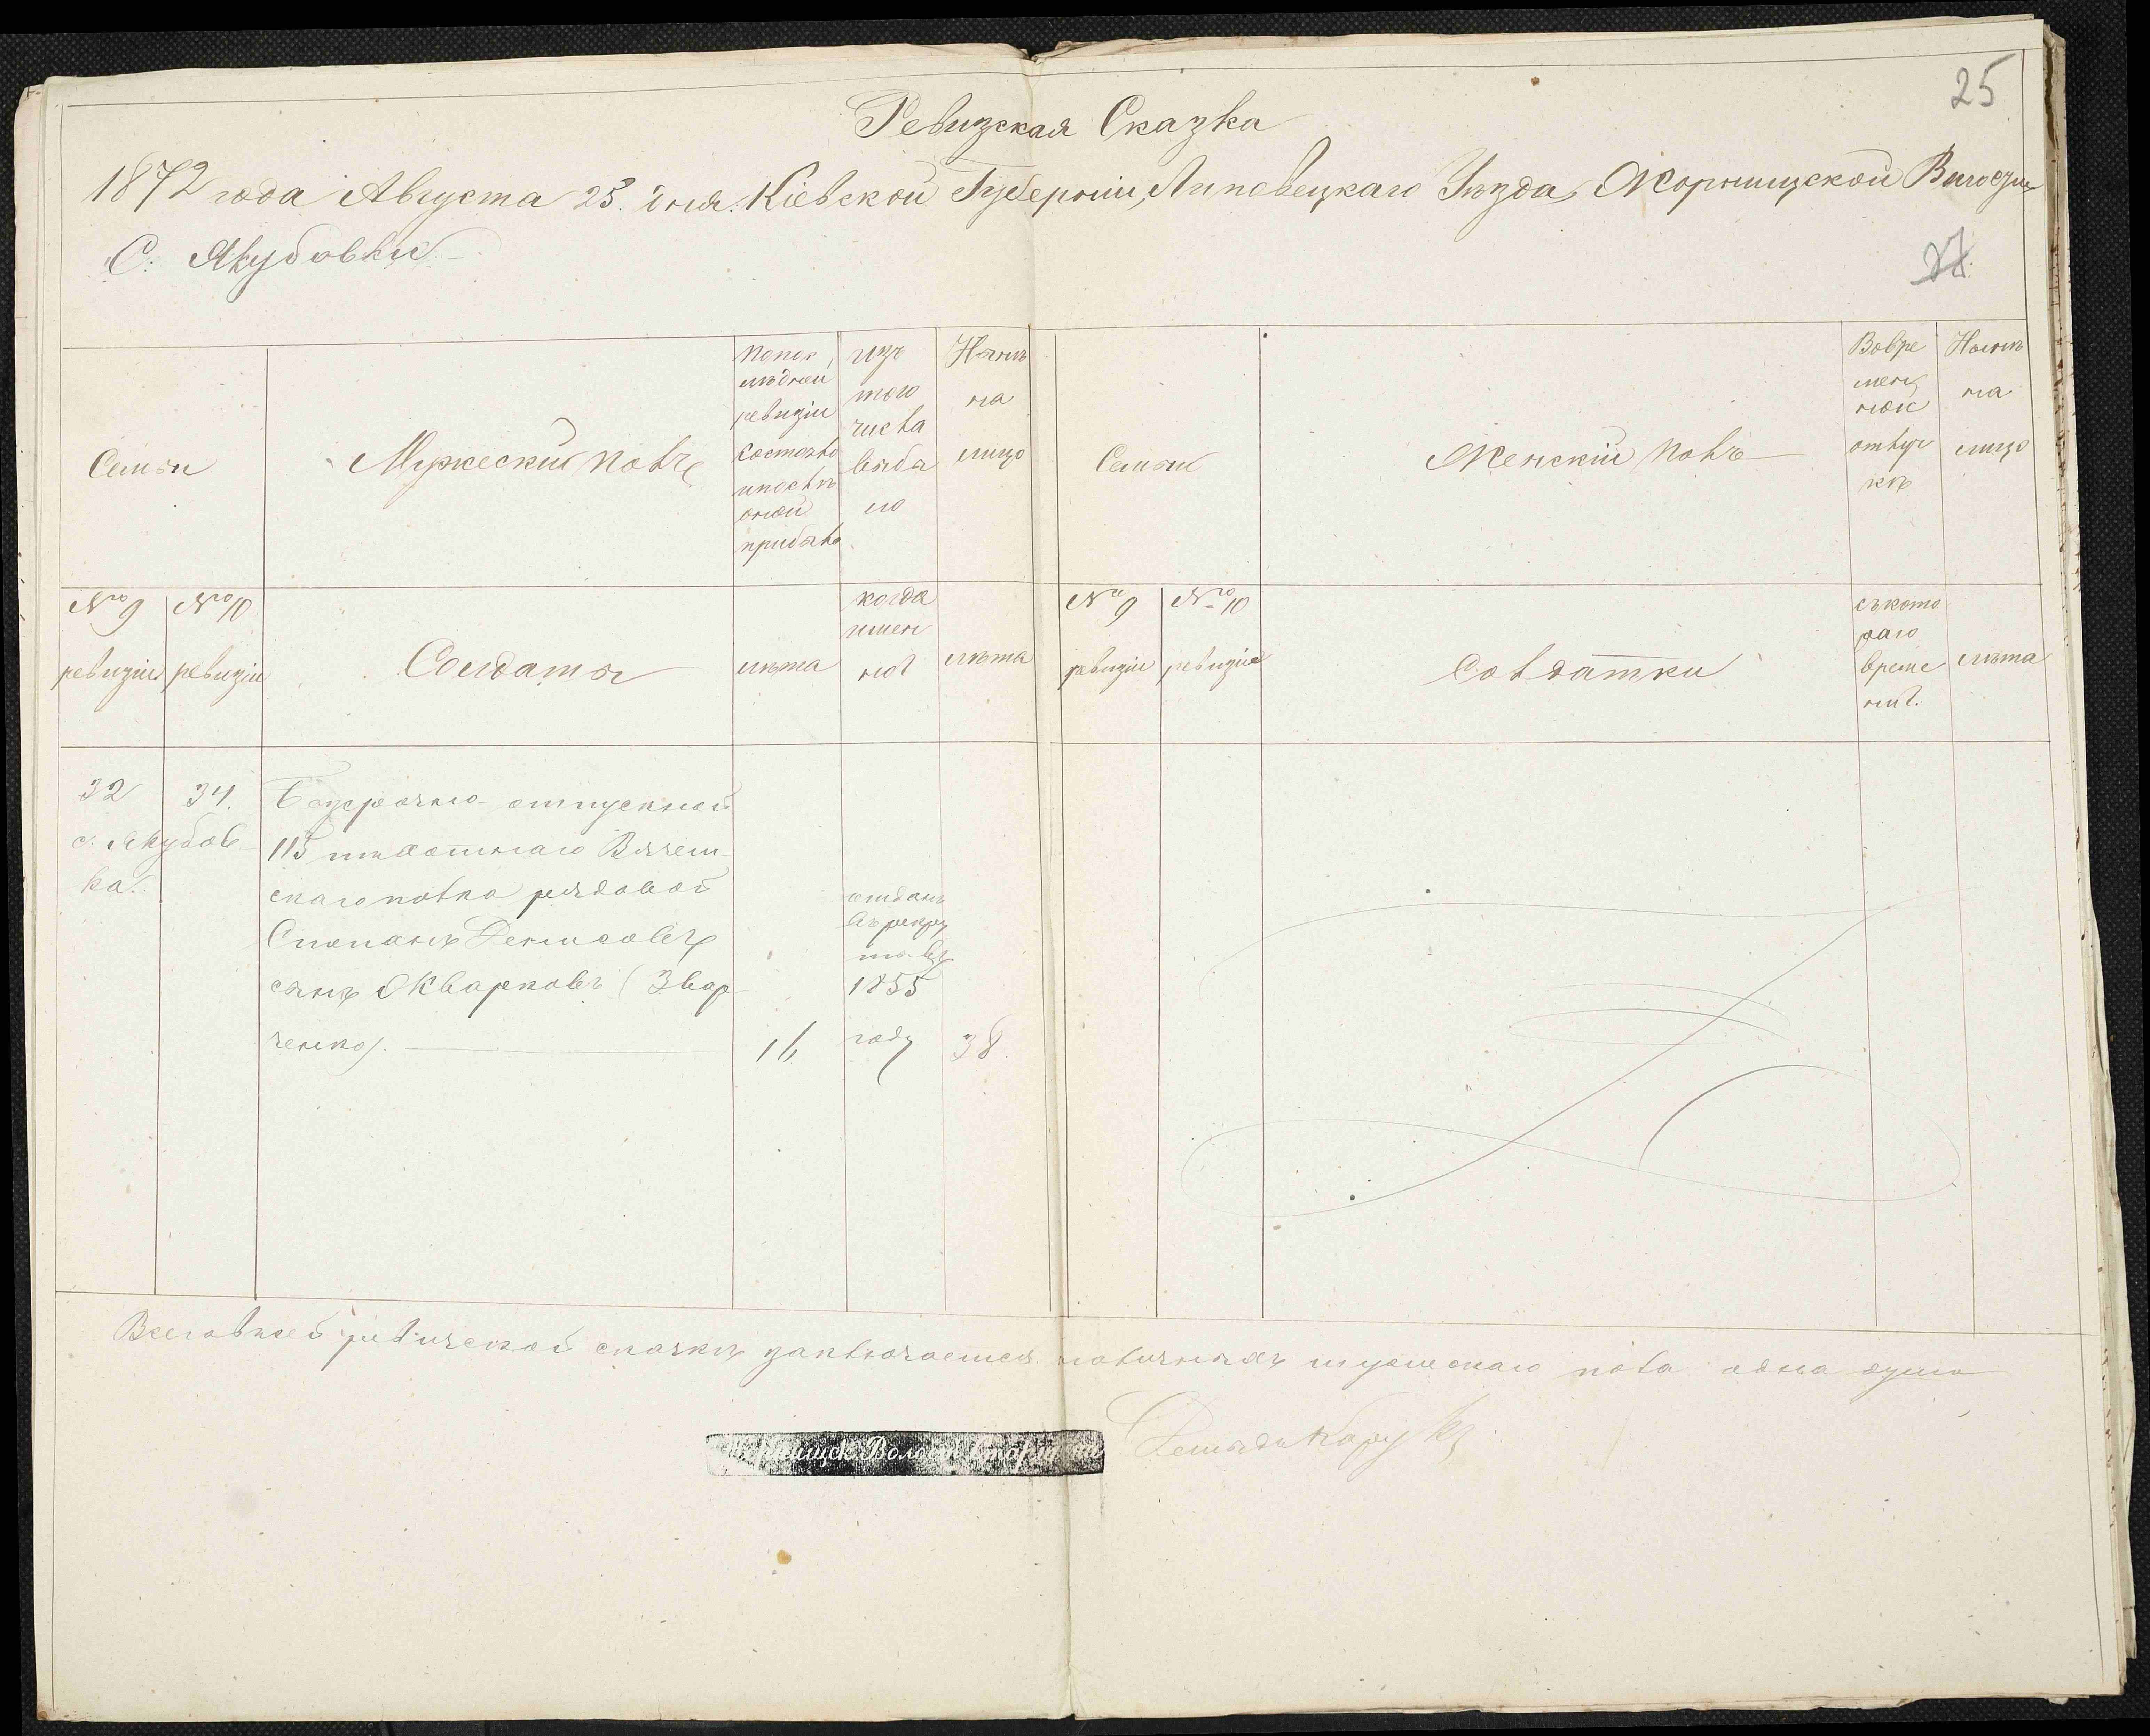 25
Ревизская Сказка
1872 года Августа 25. дня. Кіевской Губерніи, Липовецкаго Уѣзда, Жорнищской Волости
С. Якубовки.
27
Семьи
Мужескій полъ
Попос
лѣдней
ревизіи
состояло
ипослѣ
оной
прибыло
изъ
того
числа
выбы
ло
Нынѣ
на
лицо
Семьи
Женскій полъ
Вовре
мен
ной
отлуч
кѣ
Нынѣ
на
лицо
№ 9
ревизіи
№ 10
ревизіи
Солдаты
лѣта
когда
имен
но
лѣта
№ 9
ревизіи
№ 10
ревизіи
Солдатки
съкото
раго
време
ни.
лѣта
32
34.
с. Якубов
ка.
Безсрочно отпускной
115 пѣхотнаго Вязем-
скаго полка рядовой
Степанъ Денисовъ
сынъ Жварковъ (Звар
ченко).
16
отданъ
въ рекру
ты въ
1855
году
38.
Всего въ сей ревизской сказкѣ заключается наличныхъ мужескаго пола одна душа
Жорнищск. Волост. Старшина